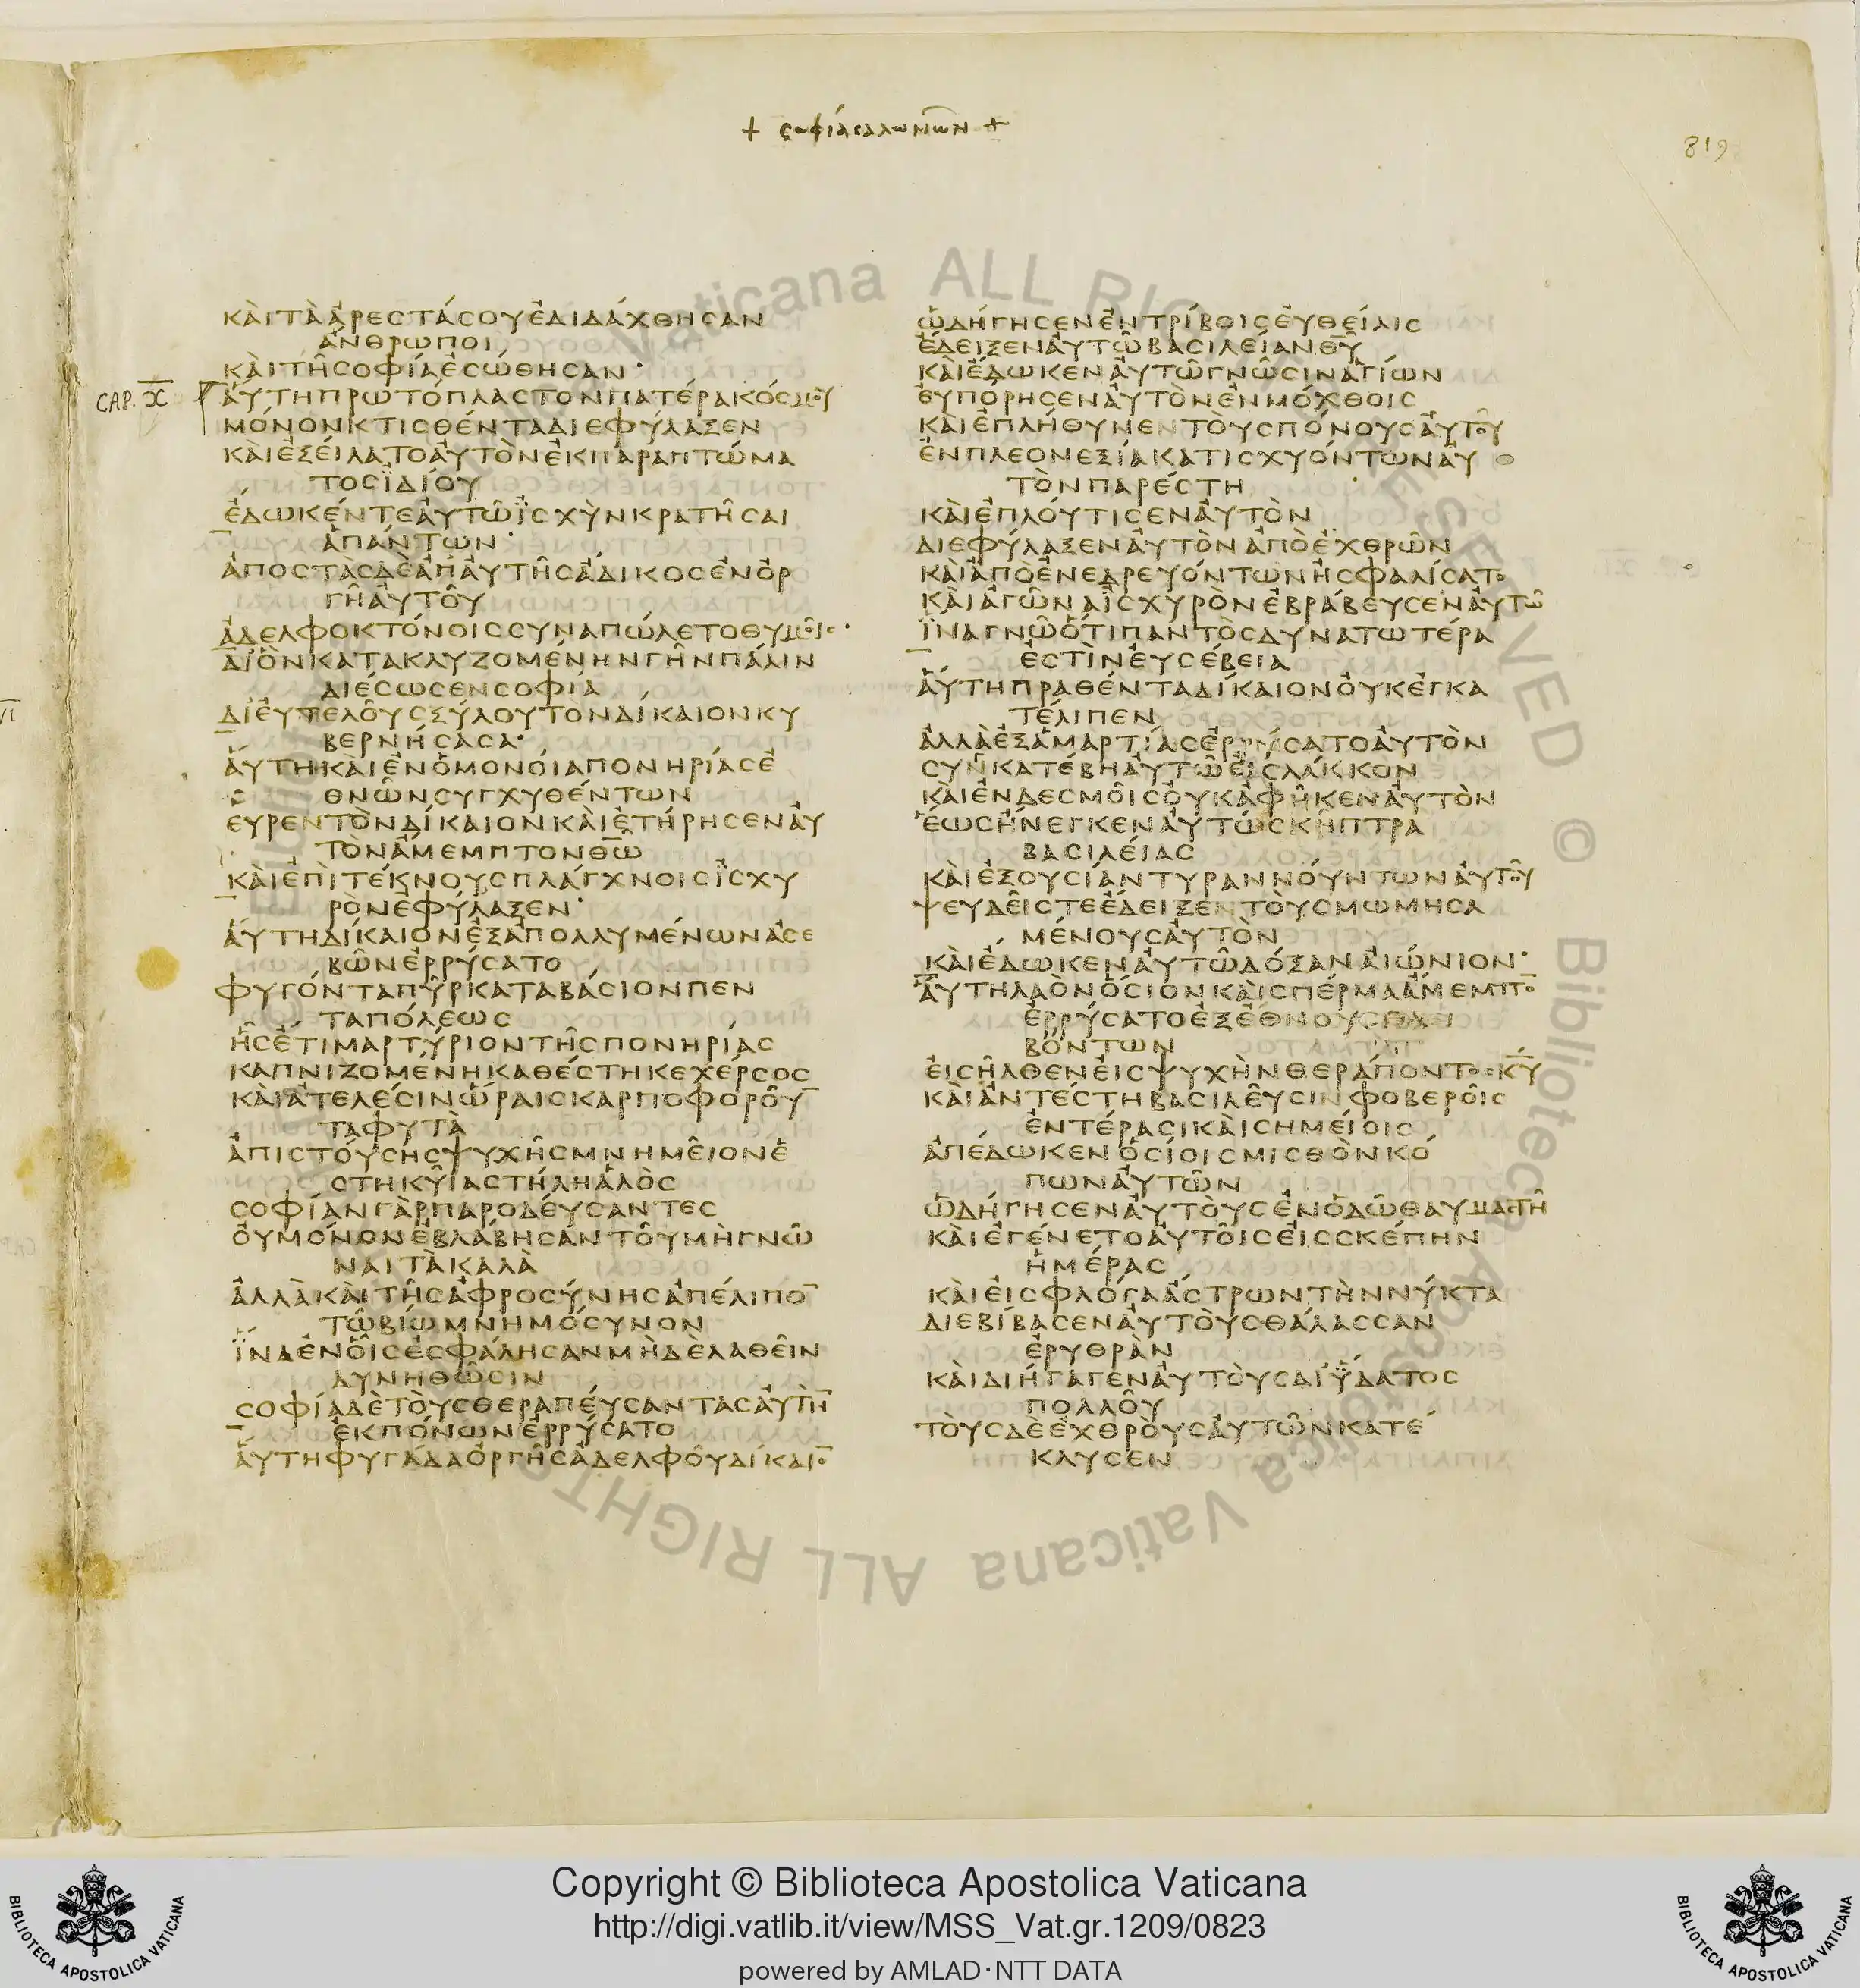 + σοφία σαλωμῶν +
819
ΚΑῚΤᾺἈΡΕϹΤΆϹΟΥἘΔΙΔΆΧΘΗϹΑΝ
ἌΝΘΡΩΠΟΙ
ΚΑῚΤΗ͂ϹΟΦΊΑἘϹΏΘΗϹΑΝ·
CAP. X
ἉΎΤΗΠΡΩΤΌΠΛΑϹΤΟΝΠΑΤΈΡΑΚΌϹΜΟΥ
ΜΌΝΟΝΚΤΙϹΘΈΝΤΑΔΙΕΦΎΛΑΞΕΝ
ΚΑῚἘΞΕΊΛΑΤΟἈΥΤῸΝἘΚΠΑΡΑΠΤΏΜΑ
ΤΟϹΪΔΊΟΥ
ἜΔΩΚΈΝΤΕἈΥΤΩ͂ἸϹΧῪΝΚΡΑΤΗ͂ϹΑΙ
ἉΠΆΝΤΩΝ·
ἈΠΟϹΤᾺϹΔῈἈΠἈΥΤΗ͂ϹἌΔΙΚΟϹἘΝὈΡ
ΓΗ͂ἈΥΤΟΥ͂
ἈΔΕΛΦΟΚΤΌΝΟΙϹϹΥΝΑΠΏΛΕΤΟΘΥΜΟΙ͂Ϲ·
ΔΙ᾿ὋΝΚΑΤΑΚΛΥΖΟΜΈΝΗΝΓΗ͂ΝΠΆΛΙΝ
ΔΙΈϹΩϹΕΝϹΟΦΊΑ
ΔΙ᾿ἘΥΤΕΛΟΥ͂ϹΞΎΛΟΥΤῸΝΔΊΚΑΙΟΝΚΥ
ΒΕΡΝΉϹΑϹΑ·
ἉΎΤΗΚΑΙἘΝὉΜΟΝΟΊΑΠΟΝΗΡΊΑϹἘ
ΘΝΩ͂ΝϹΥΓΧΥΘΈΝΤΩΝ
ΕΥΡΕΝΤῸΝΔΊΚΑΙΟΝΚΑῚἘΤΉΡΗϹΕΝἈΥ
ΤῸΝἌΜΕΜΠΤΟΝΘ̅Ω̅
ΚΑῚἘΠῚΤΈΚΝΟΥϹΠΛΆΓΧΝΟΙϹἸϹΧΥ
ΡῸΝἘΦΎΛΑΞΕΝ·
ἉΎΤΗΔΊΚΑΙΟΝἘΞΑΠΟΛΛΥΜΈΝΩΝἈϹΕ
ΒΩ͂ΝἘΡΡΎϹΑΤΟ
ΦΥΓΌΝΤΑΠΥ͂ΡΚΑΤΑΒΆϹΙΟΝΠΕΝ
ΤΑΠΌΛΕΩϹ
ἯϹἜΤΙΜΑΡΤΎΡΙΟΝΤΗ͂ϹΠΟΝΗΡΊΑϹ
ΚΑΠΝΙΖΟΜΈΝΗΚΑΘΈϹΤΗΚΕΧΈΡϹΟϹ
ΚΑῚἈΤΕΛΈϹΙΝὭΡΑΙϹΚΑΡΠΟΦΟΡΟΥ̅
ΤΑΦΥΤᾺ
ἈΠΙϹΤΟΎϹΗϹΨΥΧΗ͂ϹΜΝΗΜΕΙ͂ΟΝἘ
ϹΤΗΚΥΙ͂ΑϹΤΉΛΗἉΛῸϹ
ϹΟΦΊΑΝΓᾺΡΠΑΡΟΔΕΎϹΑΝΤΕϹ
ΟΥΜΌΝΟΝἘΒΛΆΒΗϹΑΝΤΟΥ͂ΜῊΓΝΩ͂
ΝΑΙΤᾺΚΑΛᾺ
ἈΛΛᾺΚΑῚΤΗ͂ϹἈΦΡΟϹΎΝΗϹἈΠΈΛΙΠΟ̅
ΤΩ͂ΒΊΩΜΝΗΜΌϹΥΝΟΝ
ἽΝΑἘΝὉΙ͂ϹἘϹΦΆΛΗϹΑΝΜΗΔῈΛΑΘΕΙ͂Ν
ΔΥΝΗΘΩ͂ϹΙΝ
ϹΟΦΊΑΔῈΤΟῪϹΘΕΡΑΠΕΎϹΑΝΤΑϹἈΥΤΗ̅
ἘΚΠΌΝΩΝἘΡΡΎϹΑΤΟ
ἉΎΤΗΦΥΓΆΔΑὈΡΓΗ͂ϹἈΔΕΛΦΟΥ͂ΔΊΚΑΙΟ̅
ὩΔΉΓΗϹΕΝἘΝΤΡΊΒΟΙϹἘΥΘΕΊΑΙϹ
ἜΔΕΙΞΕΝἈΥΤΩ͂ΒΑϹΙΛΕΊΑΝΘ̅Υ̅
ΚΑῚἜΔΩΚΕΝἈΥΤΩ͂ΓΝΩ͂ϹΙΝἉΓΊΩΝ
ἘΥΠΌΡΗϹΕΝἈΥΤῸΝἘΝΜΌΧΘΟΙϹ
ΚΑῚἘΠΛΉΘΥΝΕΝΤΟῪϹΠΌΝΟΥϹἈΥΤΟΥ͂
ἘΝΠΛΕΟΝΕΞΊΑΚΑΤΙϹΧΥΌΝΤΩΝἈΥ
ΤῸΝΠΑΡΈϹΤΗ
ΚΑῚἘΠΛΟΎΤΙϹΕΝἈΥΤῸΝ
ΔΙΕΦΎΛΑΞΕΝἈΥΤῸΝἈΠῸἘΧΘΡΩ͂Ν
ΚΑῚἈΠῸἘΝΕΔΡΕΥΌΝΤΩΝἨϹΦΑΛΊϹΑΤΟ
ΚΑῚἈΓΩ͂ΝΑἸϹΧΥΡῸΝἘΒΡΆΒΕΥϹΕΝἈΥΤΩ͂
ἽΝΑΓΝΩ͂ὍΤΙΠΑΝΤῸϹΔΥΝΑΤΩΤΈΡΑ
ἘϹΤῚΝἘΥϹΈΒΕΙΑ
ἉΎΤΗΠΡΑΘΈΝΤΑΔΊΚΑΙΟΝΟΥΚἘΓΚΑ
ΤΈΛΙΠΕΝ
ἈΛΛᾺἘΞἉΜΑΡΤΊΑϹἘΡΡΎϹΑΤΟἈΥΤῸΝ
ϹΥΝΚΑΤΈΒΗἈΥΤΩ͂ἘΙϹΛΆΚΚΟΝ
ΚΑῚἘΝΔΕϹΜΟΙ͂ϹΟΥΚἈΦΗ͂ΚΕΝἈΥΤῸΝ
ἝΩϹἬΝΕΓΚΕΝἈΥΤΩ͂ϹΚΗ͂ΠΤΡΑ
ΒΑϹΙΛΕΊΑϹ
ΚΑῚἘΞΟΥϹΊΑΝΤΥΡΑΝΝΟΎΝΤΩΝἈΥΤΟΥ͂
ΨΕΥΔΕΙ͂ϹΤΕἜΔΕΙΞΕΝΤΟῪϹΜΩΜΗϹΑ
ΜΈΝΟΥϹἈΥΤῸΝ
ΚΑῚἜΔΩΚΕΝἈΥΤΩ͂ΔΌΞΑΝΑἸΏΝΙΟΝ·
ἉΎΤΗΛΑῸΝὍϹΙΟΝΚΑῚϹΠΈΡΜΑἌΜΕΜΠΤΟ̅
ἘΡΡΎϹΑΤΟἘΞἜΘΝΟΥϹΘΛΙ
ΒΌΝΤΩΝ
ἘΙϹΗ͂ΛΘΕΝἘΙϹΨΥΧῊΝΘΕΡΆΠΟΝΤΟϹΚ̅Υ̅
ΚΑῚἈΝΤΈϹΤΗΒΑϹΙΛΕΥ͂ϹΙΝΦΟΒΕΡΟΙ͂Ϲ
ἘΝΤΈΡΑϹΙΚΑῚϹΗΜΕΊΟΙϹ
ἈΠΈΔΩΚΕΝὉϹΊΟΙϹΜΙϹΘῸΝΚΌ
ΠΩΝἈΥΤΩ͂Ν
ὩΔΉΓΗϹΕΝἈΥΤΟῪϹἘΝὉΔΩ͂ΘΑΥΜΑϹΤΗ͂
ΚΑῚἘΓΈΝΕΤΟἈΥΤΟΙ͂ϹἘΙϹϹΚΈΠΗΝ
ἩΜΈΡΑϹ
ΚΑῚἘΙϹΦΛΌΓΑἌϹΤΡΩΝΤῊΝΝΎΚΤΑ
ΔΙΕΒΊΒΑϹΕΝἈΥΤΟῪϹΘΆΛΑϹϹΑΝ
ἘΡΥΘΡᾺΝ
ΚΑῚΔΙΉΓΑΓΕΝἈΥΤΟῪϹΔΙ᾿ὝΔΑΤΟϹ
ΠΟΛΛΟΥ͂
ΤΟῪϹΔῈἘΧΘΡΟῪϹἈΥΤΩ͂ΝΚΑΤΈ
ΚΛΥϹΕΝ
Copyright © Biblioteca Apostolica Vaticana
http://digi.vatlib.it/view/MSS_Vat.gr.1209/0823
powered by AMLAD·NTT DATA
BIBLIOTECA APOSTOLICA VATICANA
BIBLIOTECA APOSTOLICA VATICANA